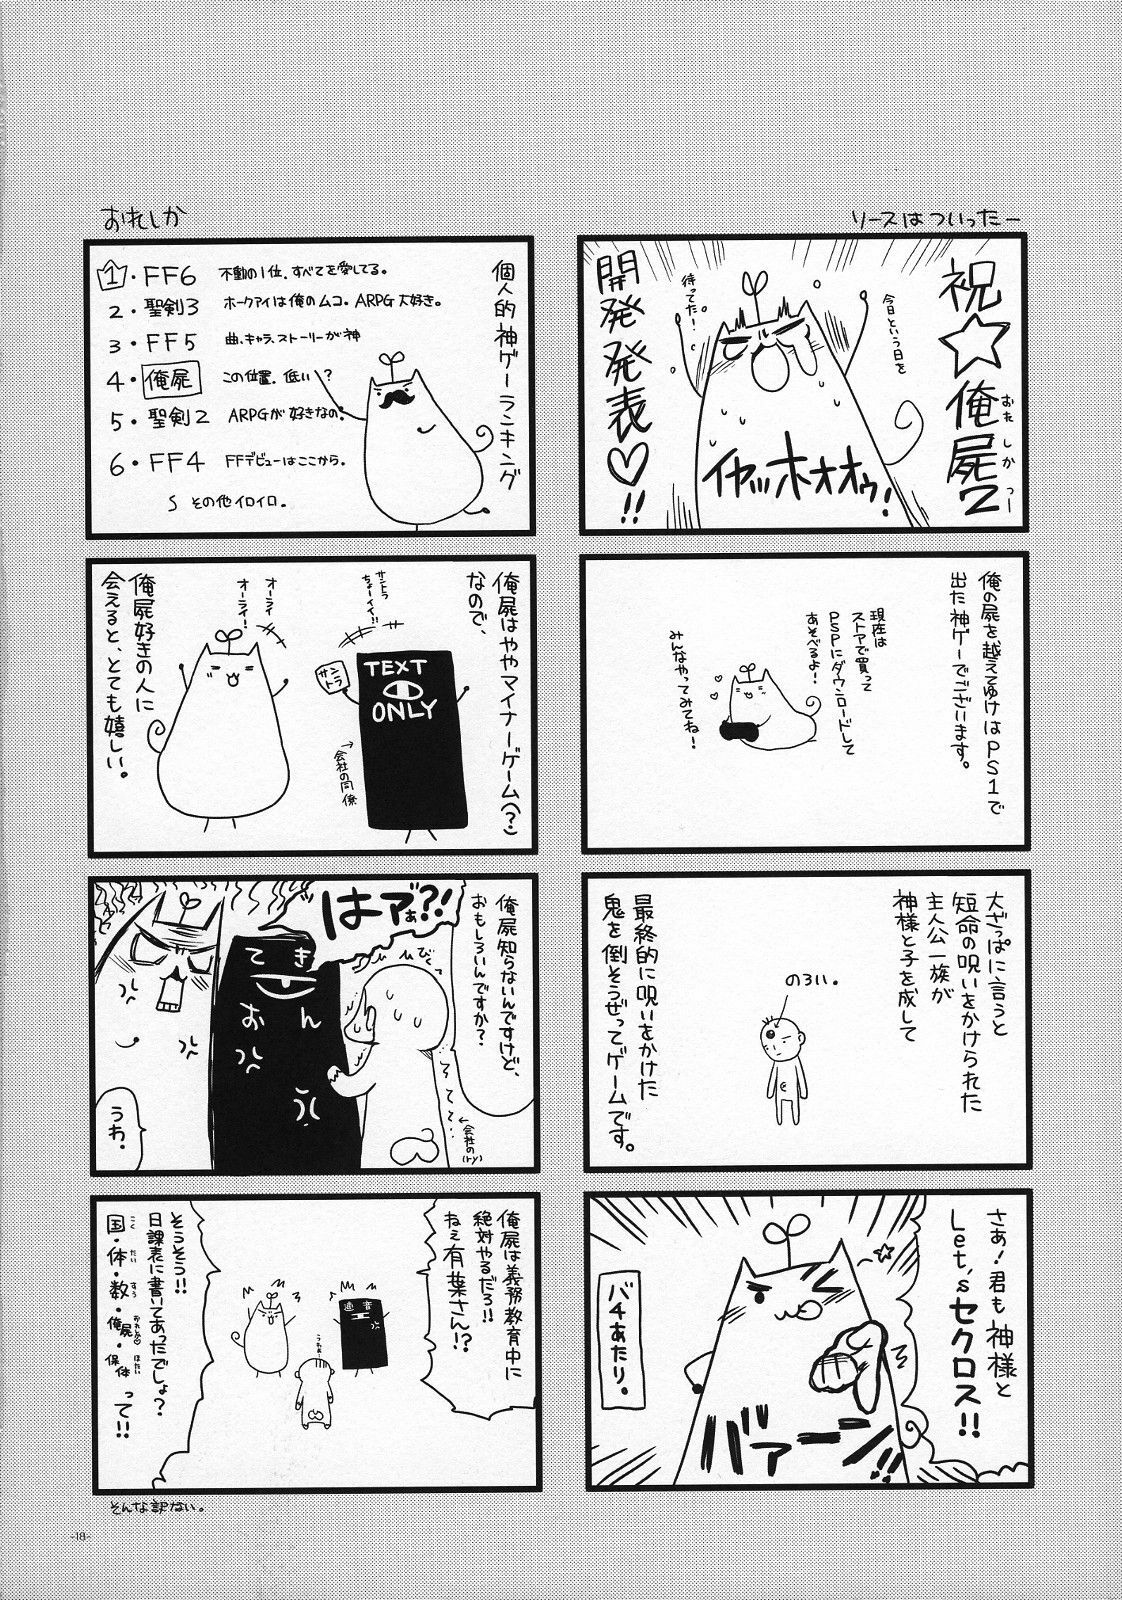 リースはついったー
祝☆俺屍2
おれしかつー
今日という日を
待ってた!
開発発表♡!!
イヤッホオオゥ!
俺の屍を越えてゆけはPS1で
出た神ゲーでございます。
現在は
ストアで買って
PSPにダウンロードして
あそべるよ!
みんなやってみてね!
大ざっぱに言うと
短命の呪いをかけられた
主人公一族が
神様と子を成して
のろい。
最終的に呪いをかけた
鬼を倒そうぜってゲームです。
さぁ!君も神様と
Let'sセクロス!!
バァーン!!
バチあたり。
おれしか
個人的神ゲーランキング
1・FF6 不動の1位。すべてを愛してる。
2・聖剣3 ホークアイは俺のムコ。ARPG大好き。
3・FF5 曲、キャラ、ストーリーが神
4・俺屍 この位置、低い?
5・聖剣2 ARPGが好きなの。
6・FF4 FFデビューはここから。
S その他イロイロ。
俺屍はややマイナーゲーム(?)
なので、
サントラ
ちょーイイ!!
サントラ
TEXT
ONLY
→会社の同僚
オーライ
オーライ!
俺屍好きの人に
会えると、とても嬉しい。
俺屍知らないんですけど、
おもしろいんですか?
はアぁ?!
びくっ
てきおん
←会社の(ry)
うわ。
俺屍は義務教育中に
絶対やるだろ!!
ねぇ有葉さん!?
適音
うわぁ…
そうそう!!
日課表に書いてあったでしょ?
国・体・数・俺屍・保体って!!
こく たい すう おれしか ほたい
そんな訳ない。
-18-